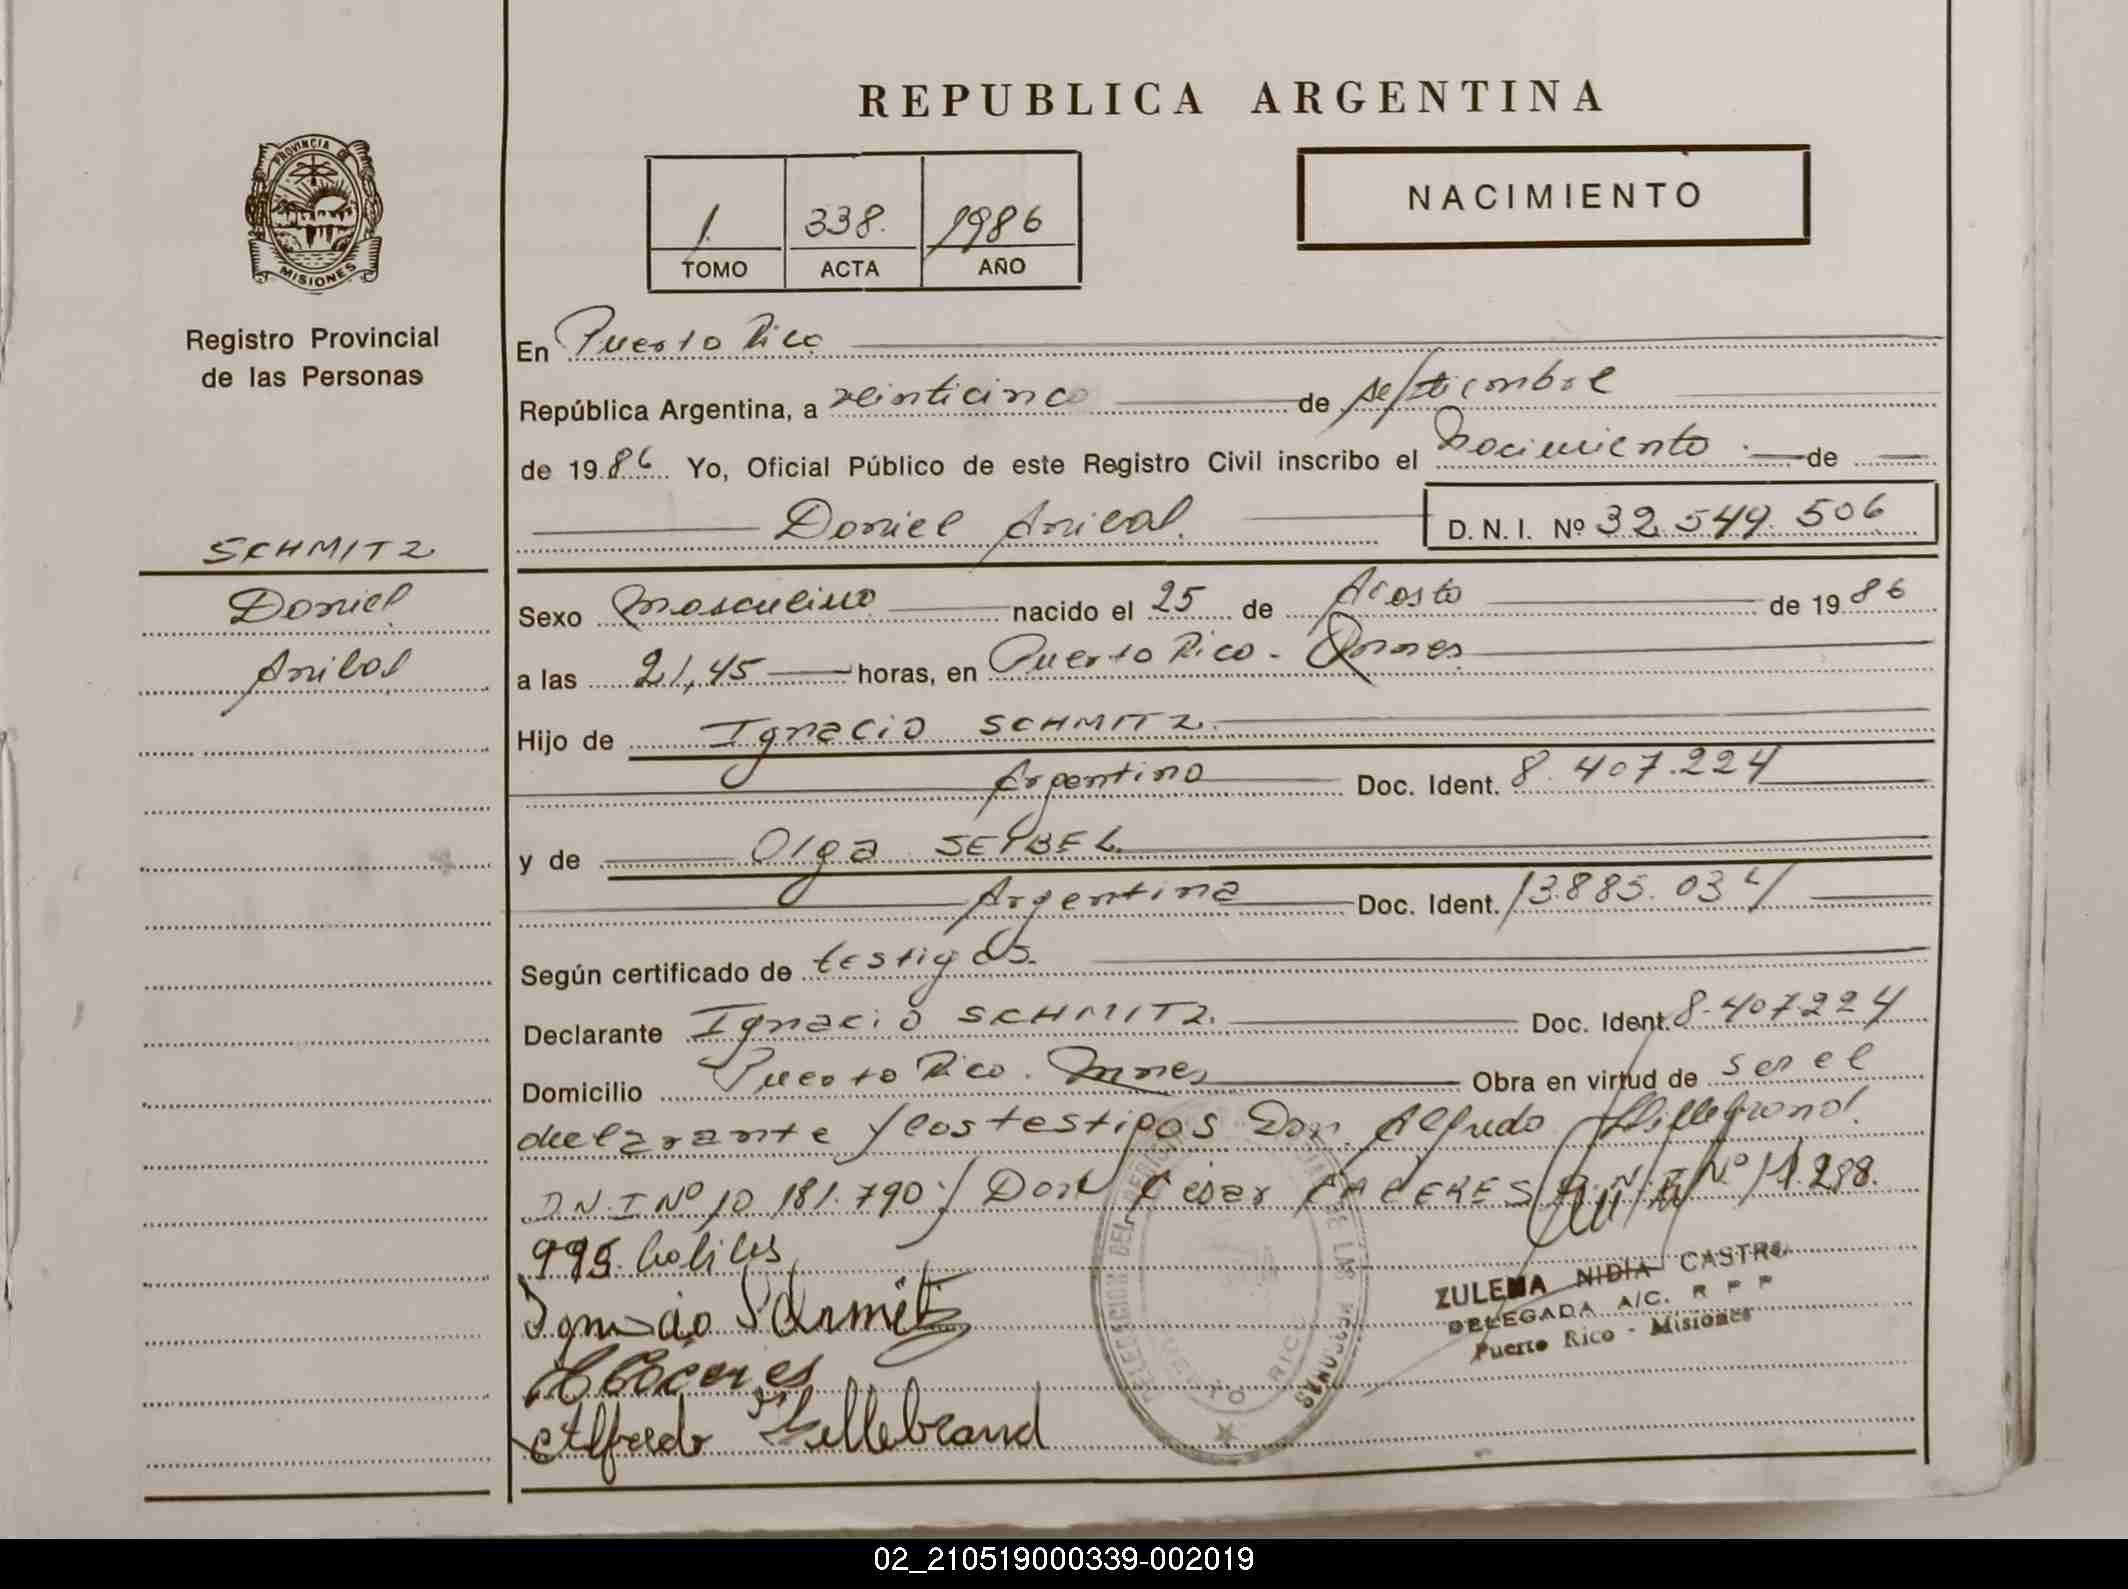 REPUBLICA ARGENTINA
PROVINCIA DE
MISIONES
Registro Provincial
de las Personas
1. 338. 1986
TOMO ACTA AÑO
NACIMIENTO
En Puerto Rico
República Argentina, a veinticinco de septiembre
de 1986 Yo, Oficial Público de este Registro Civil inscribo el Nacimiento de
Daniel Anibal. D. N. I. Nº 32.549.506
SCHMITZ
Daniel
Anibal
Sexo Masculino nacido el 25 de Agosto de 1986
a las 21,45 horas, en Puerto Rico - Mnes.
Hijo de Ignacio SCHMITZ.
Argentino Doc. Ident. 8.407.224
y de Olga SEYBEL
Argentina Doc. Ident. 13.885.034
Según certificado de testigos.
Declarante Ignacio SCHMITZ. Doc. Ident. 8.407.224
Domicilio Puerto Rico. Mnes Obra en virtud de ser el
declarante y los testigos Don Alfredo Hillebrand.
D.N.I Nº 10.181.790 y Don Cesar CACERES D.N.I Nº 11.288.
995. habiles
Ignacio Schmitz
Caceres
Alfredo Hillebrand
ZULEMA NIDIA CASTRO
DELEGADA A/C. R P P
Puerto Rico - Misiones
02_210519000339-002019